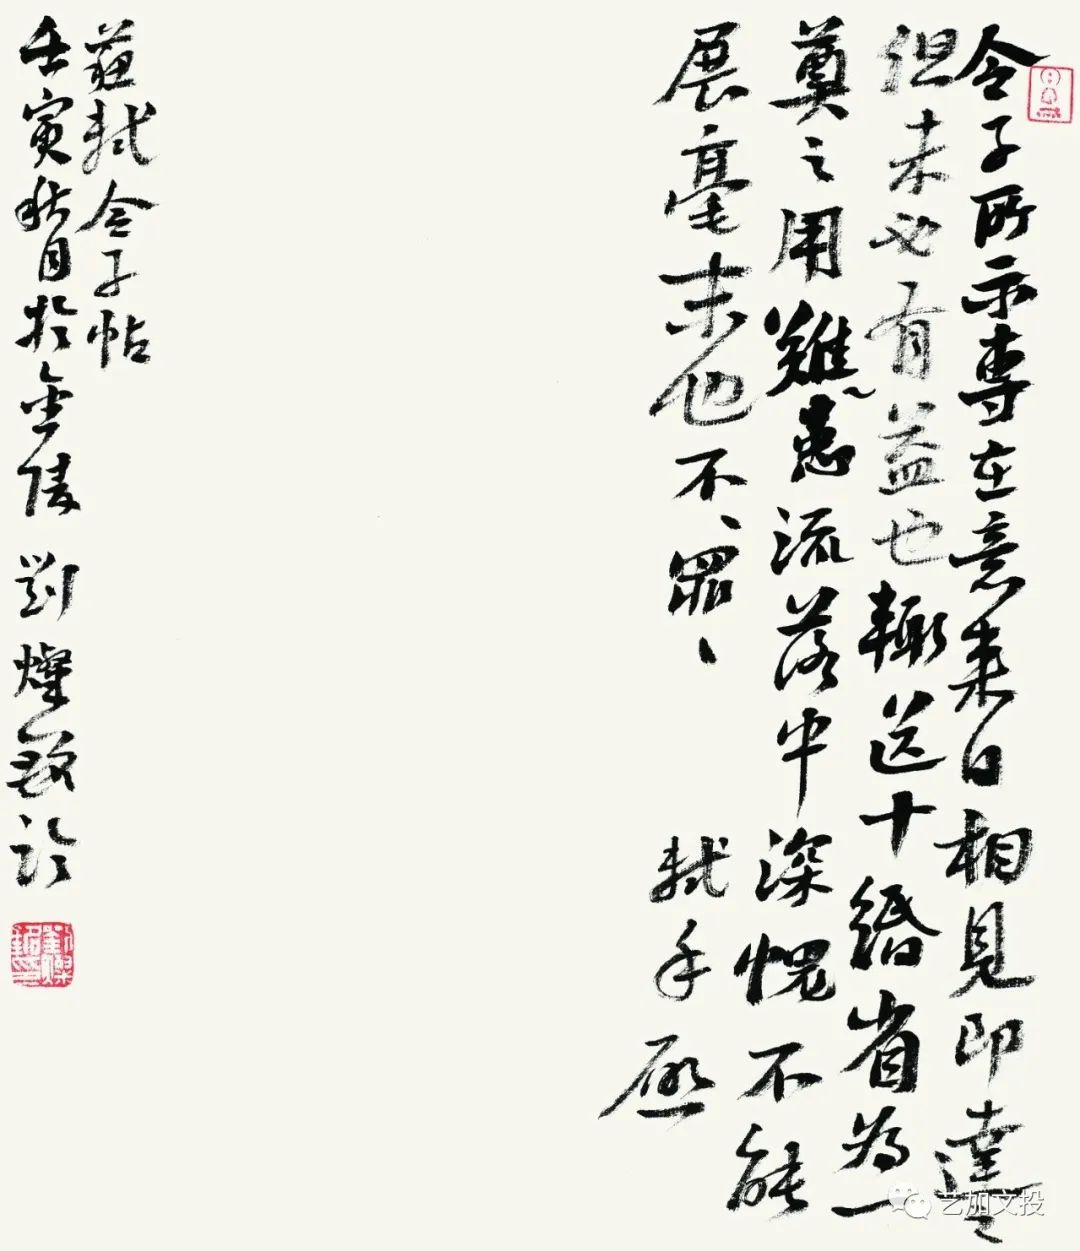 令子所示專在意来日相見即達之
但未必有益也輙送十緡省為一
奠之用難患流落中深愧不能
展毫末也不、罪、 軾手啟
蘇軾令子帖
壬寅秋月於金陵 劉燦銘臨
艺加文投